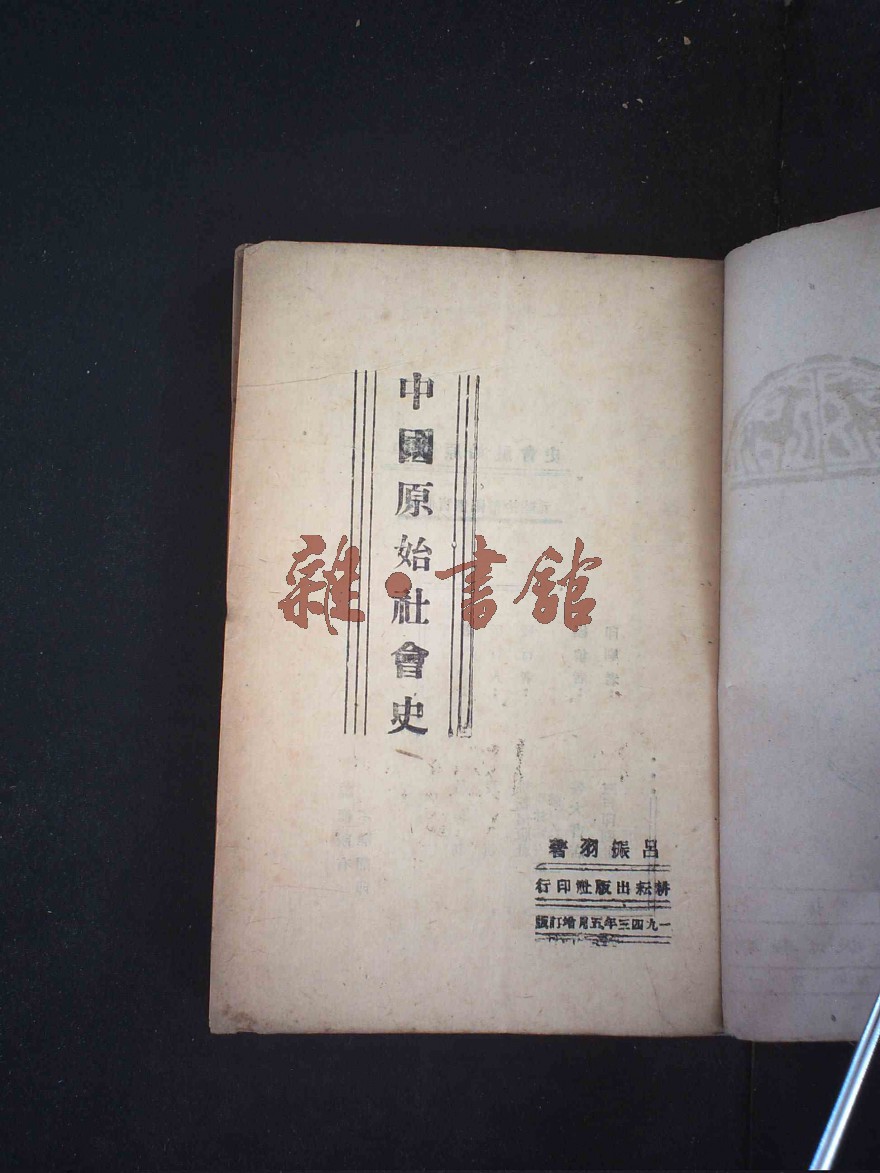 中國原始社會史
雜·書館
呂振羽著
耕耘出版社印行
一九四三年五月增訂版